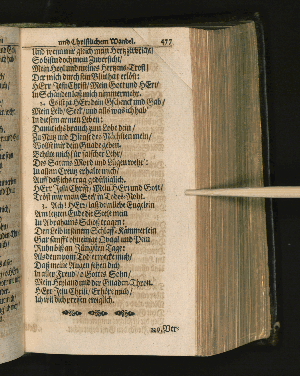 und Christlichem Wandel. 477
Und wenn mir gleich mein Hertz zerbricht/
So bist doch mein Zuversicht/
Mein Heyl und meines Hertzens-Trost/
Der mich durch sein Blut hat erlöst:
HErr Jesu Christ/ Mein Gott und HErr/
In Schanden laß mich nimmermehr.
2. Es ist ja HErr dein Gschenck und Gab/
Mein Leib/ Seel/ und alls was ich hab
In diesem armen Leben:
Damit ichs brauch zum Lobe dein/
Zu Nutz und Dienst des Nächsten mein/
Wollst mir dein Gnade geben.
Behüte mich für falscher Lehr/
Des Satans Mord und Lügen wehr:
In allem Creutz erhalte mich/
Auf daß ichs trag gedültiglich.
HErr Jesu Christ/ Mein HErr und Gott/
Tröst mir mein Seel in Todes-Noht.
3. Ach! HErr/ laß dein liebe Engelein
Am letzten Ende die Seele mein
In Abrahams Schoß tragen!
Den Leib in seinem Schlaff-Kämmerlein
Gar sanfft ohn einge Quaal und Pein
Ruhn biß am Jüngsten Tage:
Alsdenn vom Tod erwecke mich/
Daß meine Augen sehen dich
In aller Freud/ o Gottes Sohn/
Mein Heyland und der Gnaden-Thron.
HErr Jesu Christ/ Erhöre mich/
Ich will dich preisen ewiglich.